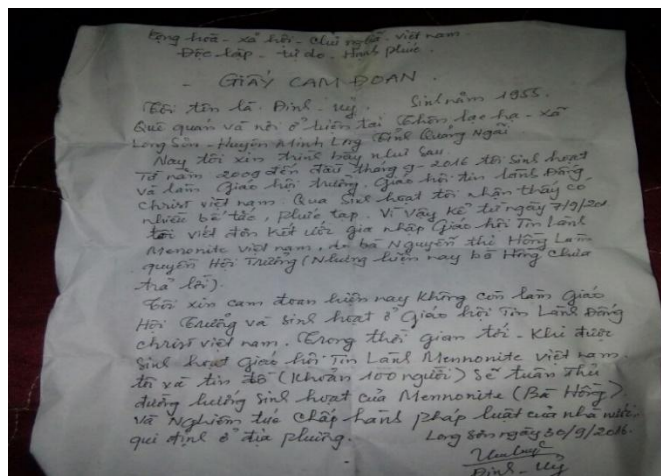 Cộng hoà - xã hội - chủ nghĩa - việt nam
Độc lập - tự do - Hạnh phúc.
- GIẤY CAM ĐOAN.
Tôi tên là. Đinh - Uỷ. Sinh năm 1955.
Quê quán và nơi ở hiện tại Thôn lạc hạ - xã
Long Sơn - Huyện Minh Long Tỉnh Quảng Ngãi
Nay tôi xin trình bày như sau.
Từ năm 2009 đến đầu tháng 9-2016 tôi sinh hoạt
và làm Giáo hội trưởng, Giáo hội tin lành Đấng
christ việt nam. Qua sinh hoạt tôi nhận thấy có
nhiều bế tắc, phức tạp. Vì vậy kể từ ngày 7/9/201
tôi viết đơn kết ước gia nhập Giáo hội Tin Lành
Menonite việt nam, do bà Nguyễn thị Hồng Làm
quyền Hội Trưởng (Nhưng hiện nay bà Hồng chưa
trả lời).
Tôi xin cam đoan hiện nay không còn làm Giáo
Hội Trưởng và sinh hoạt ở Giáo hội Tin Lành Đấng
christ việt nam. Trong thời gian tới - Khi được
sinh hoạt Giáo hội Tin Lành Mennonite việt nam.
tôi và tín đồ (Khoản 100 người) sẽ tuân thủ
đường hướng sinh hoạt của Mennonite (Bà Hồng)
và Nghiêm túc chấp hành pháp luật của nhà nước,
qui định ở địa phương.
Long Sơn ngày 30/9/2016.
Đinh - Uỷ